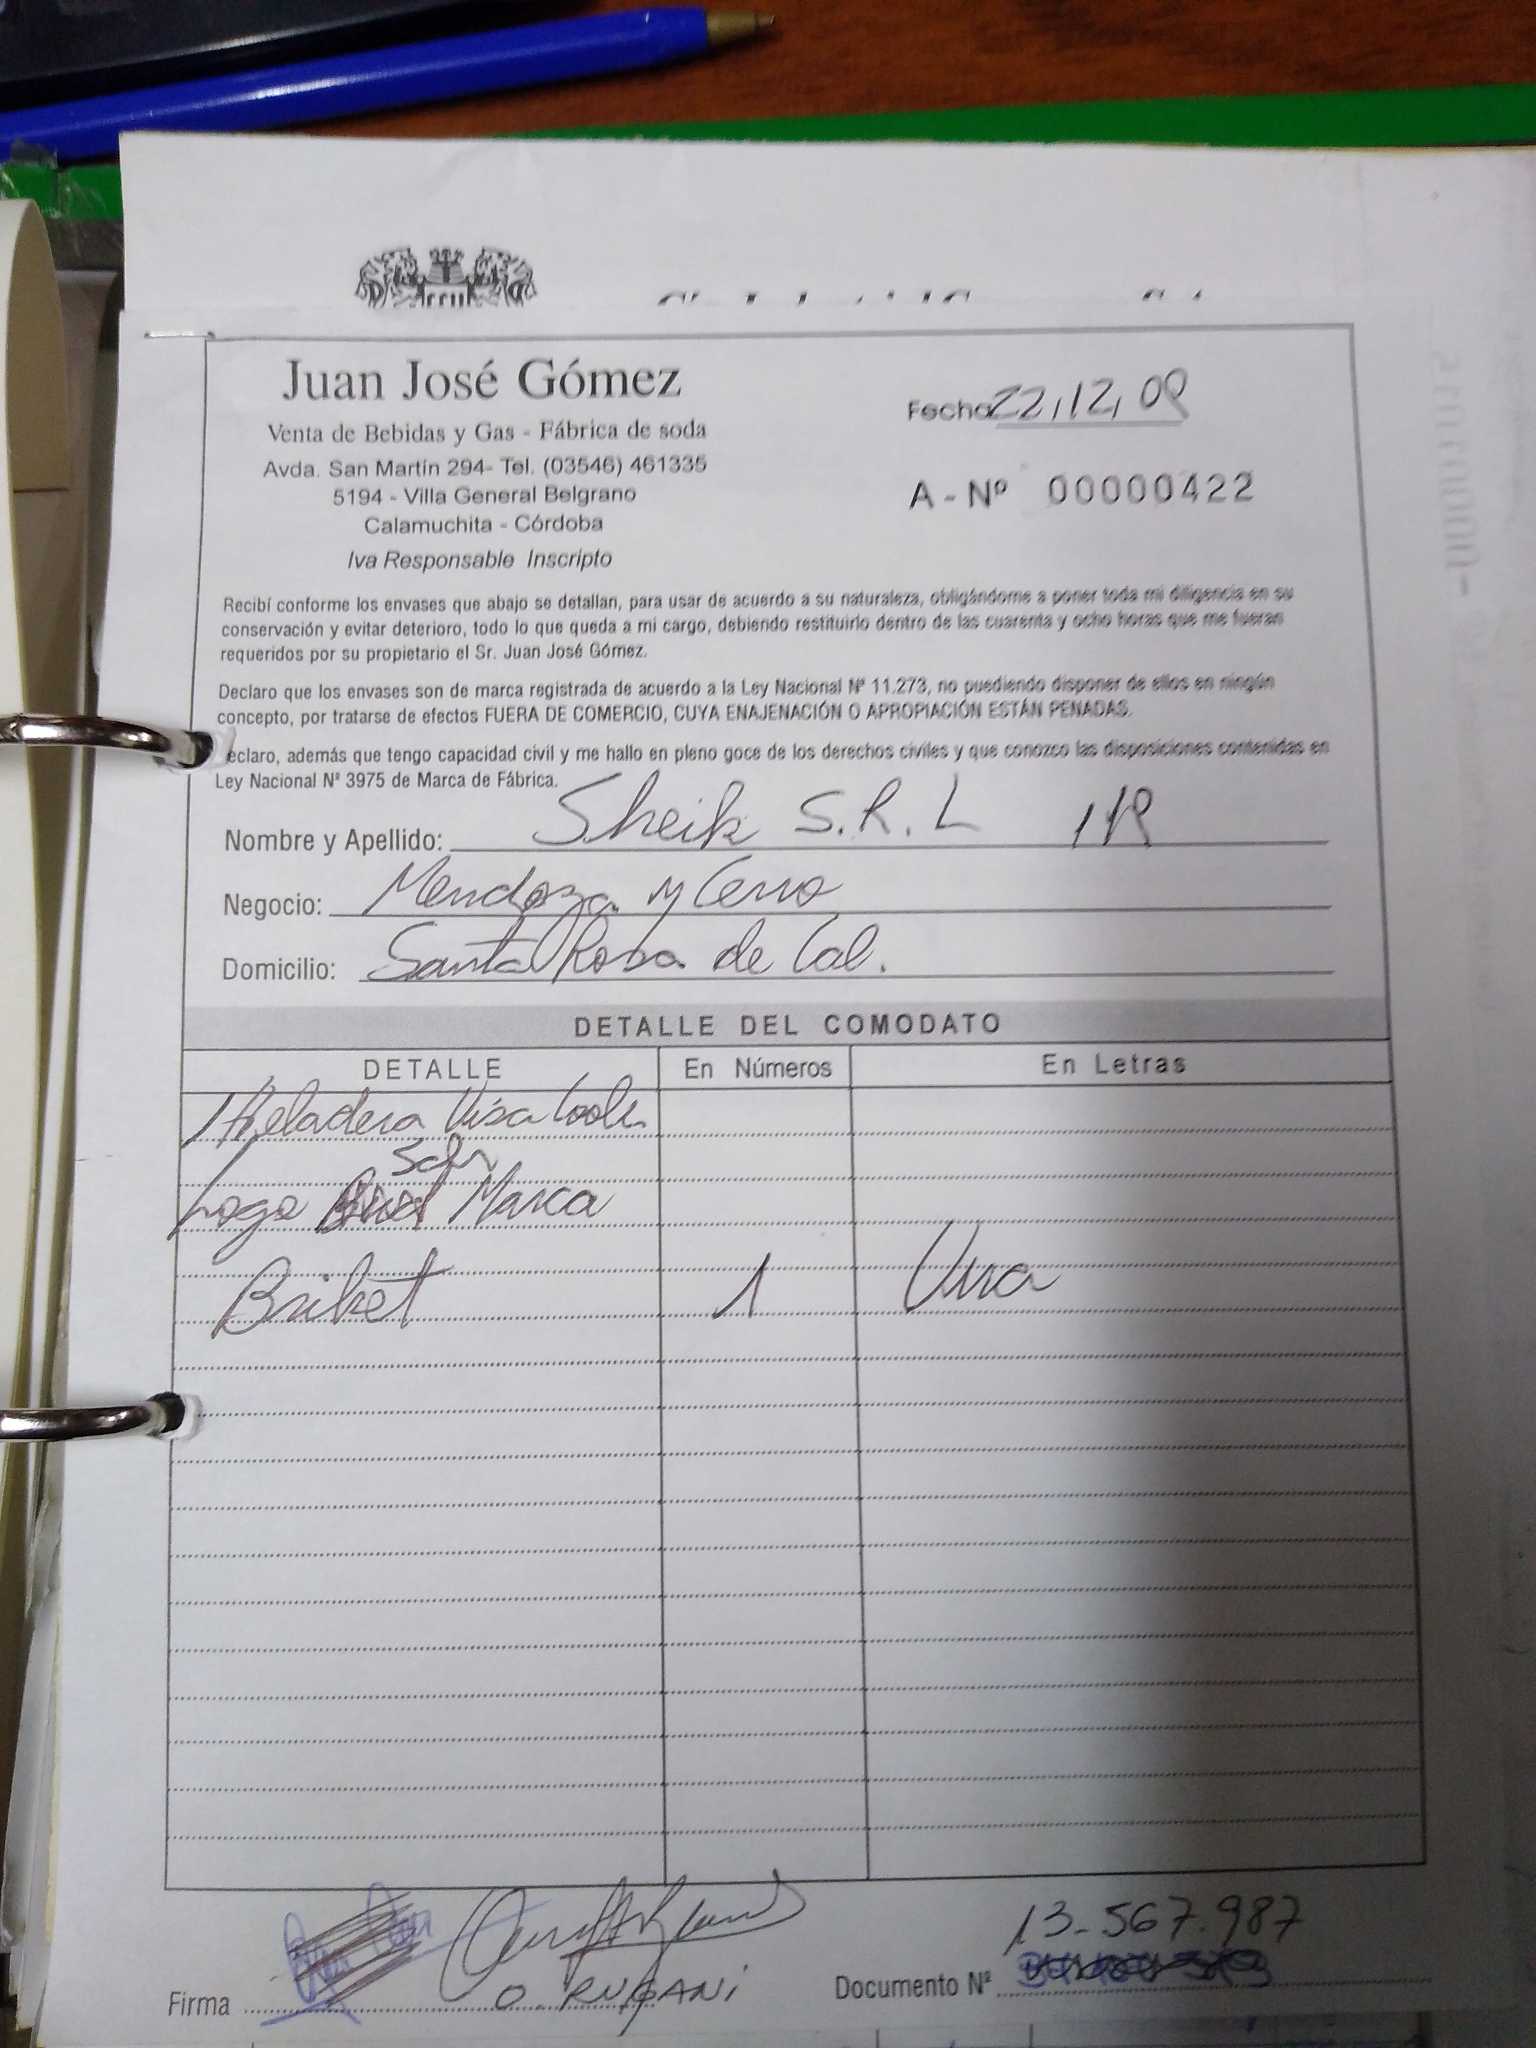 Juan José Gómez
Venta de Bebidas y Gas - Fábrica de soda
Avda. San Martín 294- Tel. (03546) 461335
5194 - Villa General Belgrano
Calamuchita - Córdoba
Iva Responsable Inscripto
Fecha 22,12,09
A - Nº 00000422
Recibí conforme los envases que abajo se detallan, para usar de acuerdo a su naturaleza, obligándome a poner toda mi diligencia en su
conservación y evitar deterioro, todo lo que queda a mi cargo, debiendo restituirlo dentro de las cuarenta y ocho horas que me fueran
requeridos por su propietario el Sr. Juan José Gómez.
Declaro que los envases son de marca registrada de acuerdo a la Ley Nacional Nº 11.273, no puediendo disponer de ellos en ningún
concepto, por tratarse de efectos FUERA DE COMERCIO, CUYA ENAJENACIÓN O APROPIACIÓN ESTÁN PENADAS.
eclaro, además que tengo capacidad civil y me hallo en pleno goce de los derechos civiles y que conozco las disposiciones contenidas en
Ley Nacional Nº 3975 de Marca de Fábrica.
Nombre y Apellido: Sheik S.R.L
Negocio: Mendoza y Cerro
Domicilio: Santa Rosa de Cal.
DETALLE DEL COMODATO
DETALLE En Números En Letras
1 Heladera Visa Cooler
Logo Marca
Briket 1 Una
13-567.987
Firma O. RUGANI Documento Nº